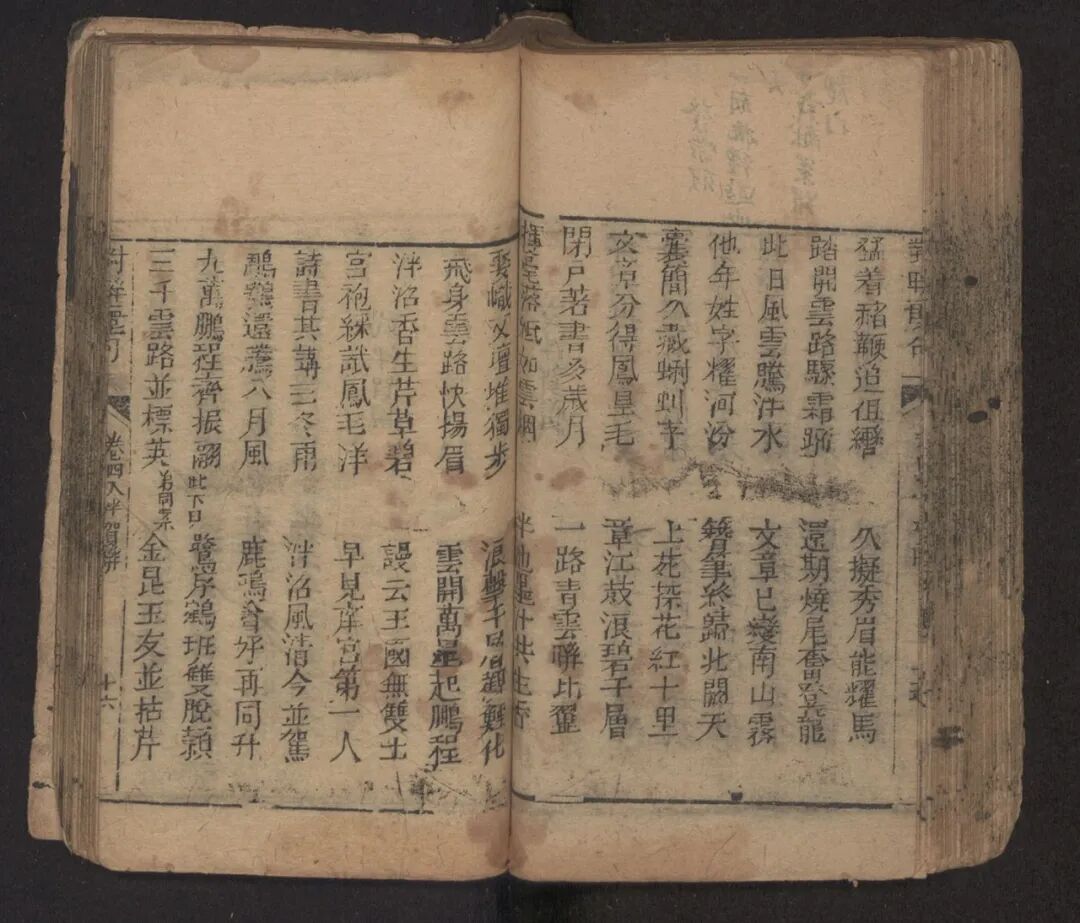 猛着豬鞭追伹
久擬秀眉能耀馬
踏開雲路驟霜蹄
還期燒尾奮登龍
此日風雲騰泮水
文章已變南山霧
他年姓字耀河汾
簪筆終歸北闕天
囊簡久藏蝌蚪字
上苑探花紅十里
文章分得鳳皇毛
章江鼓浪碧千層
閉戶著書多歲月
一路青雲聯比翼
落紙如雲烟
文壇堆獨步
浪擊千層觀鯉化
飛身雲路快揚眉
雲開萬里起鵬程
泮沼香生芹草碧
謾云王國無雙士
宮袍綵試鳳毛洋
早見南宮第一人
詩書其講三冬雨
泮沼風清今並駕
鵰鶚還薦八月風
鹿鳴賡好再同升
九萬鵬程齊振翮
此下日
鷺序鵷班雙脫穎
三千雲路並標英
弟同案
金昆玉友並拈芹
卷四入泮賀聯
十六